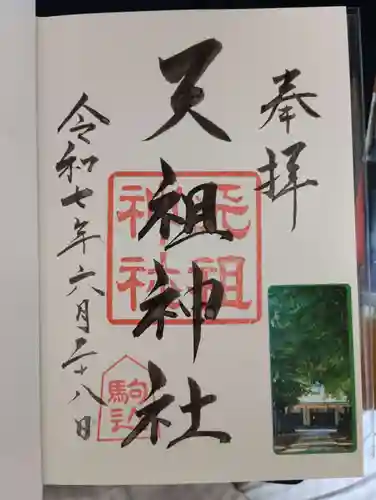 奉拝
天祖神社
天祖神社
令和七年六月二十八日
駒込